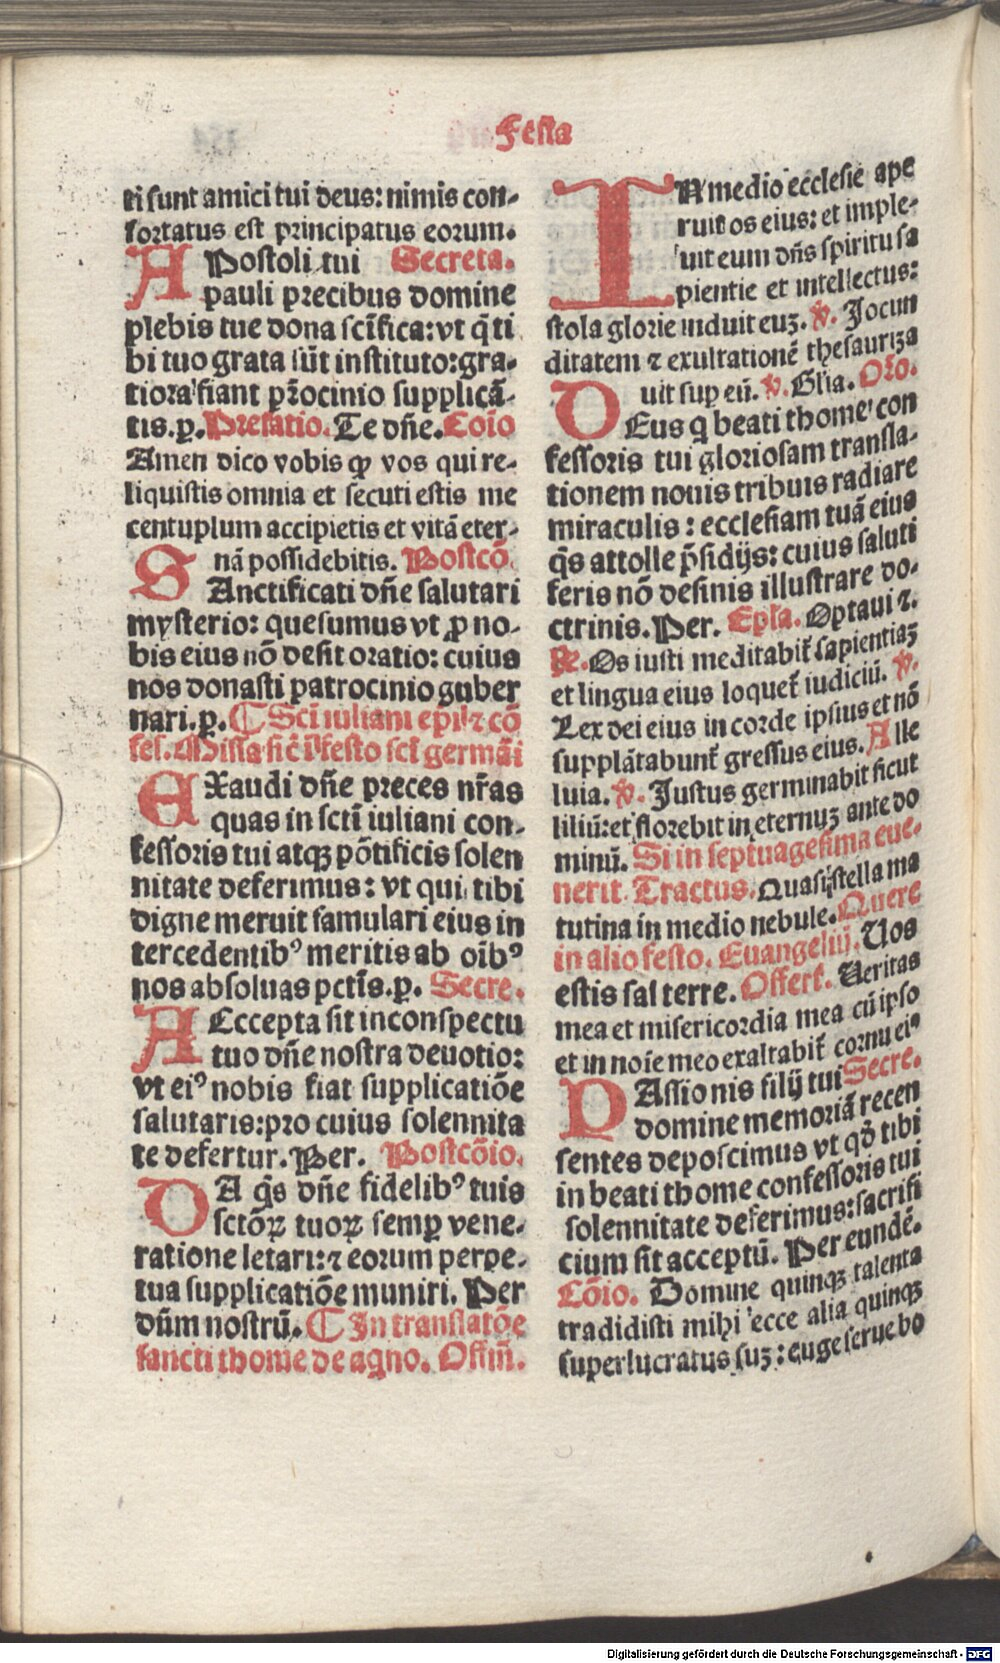 Festa
ti sunt amici tui deus: nimis con-
fortatus est principatus eorum.
APostoli tui Secreta.
pauli precibus domine
plebis tue dona scīfica: vt q̄ ti
bi tuo grata sūt instituto: gra-
tiora fiant pr̄ocinio supplicā-
tis. p. Prefatio. Te dn̄e. Cōio
Amen dico vobis ꝙ vos qui re-
liquistis omnia et secuti estis me
centuplum accipietis et vitā eter-
nā possidebitis. Postcō.
SAnctificati dn̄e salutari
mysterio: quesumus vt ꝓ no-
bis eius nō desit oratio: cuius
nos donasti patrocinio guber
nari. p. ¶ Scī iuliani ep̄i ⁊ cō
fes. Missa sic̄ ī festo scī germāi
EXaudi dn̄e preces nr̄as
quas in sctī iuliani con-
fessoris tui atqꝫ pōtificis solen
nitate deferimus: vt qui tibi
digne meruit famulari eius in
tercedentibꝰ meritis ab oībꝰ
nos absoluas pctīs. p. Secre.
AEccepta sit in conspectu
tuo dn̄e nostra deuotio:
vt eiꝰ nobis fiat supplicatiōe
salutaris: pro cuius solennita
te defertur. Per. Postcōio.
DA q̄s dn̄e fidelibꝰ tuis
sctōꝝ tuoꝝ semꝑ vene-
ratione letari: ⁊ eorum perpe-
tua supplicatiōe muniri. Per
dn̄m nostrū. ¶ In translatōe
sancti thome de aq̄no. Offm̄.
IN medio ecclesie ape
ruit os eius: et imple-
uit eum dn̄s spiritu sa
pientie et intellectus:
stola glorie induit euꝫ. ℣. Jocun
ditatem ⁊ exultationē thesauriza
uit suꝑ eū. ℣. Gl̄ia. Or̄o.
DEus q̄ beati thome con
fessoris tui gloriosam transla-
tionem nouis tribuis radiare
miraculis: ecclesiam tuā eius
q̄s attolle p̄sidijs: cuius saluti
feris nō desinis illustrare do-
ctrinis. Per. Epl̄a. Optaui ⁊.
℟. Os iusti meditabit̄ sapientiaꝫ
et lingua eius loquet̄ iudiciū. ℣.
Lex dei eius in corde ipsius et nō
supplātabunt̄ gressus eius. Alle
luia. ℣. Justus germinabit sicut
liliū: et florebit in eternuꝫ ante do
minū. Si in septuagesima eue-
nerit. Tractus. Quasi stella ma
tutina in medio nebule. Quere
in alio festo. Euangeliū. Vos
estis sal terre. Offert̄. Ueritas
mea et misericordia mea cū ipso
et in noīe meo exaltabit̄ cornu eiꝰ
PAssionis filij tui Secre.
domine memoriā recen
sentes deposcimus vt qd̄ tibi
in beati thome confessoris tui
solennitate deferimus: sacrifi
cium sit acceptū. Per eundē.
Cōio. Domine quinqꝫ talenta
tradidisti mihi ecce alia quinqꝫ
superlucratus suꝫ: euge serue bo
Digitalisierung gefördert durch die Deutsche Forschungsgemeinschaft - DFG